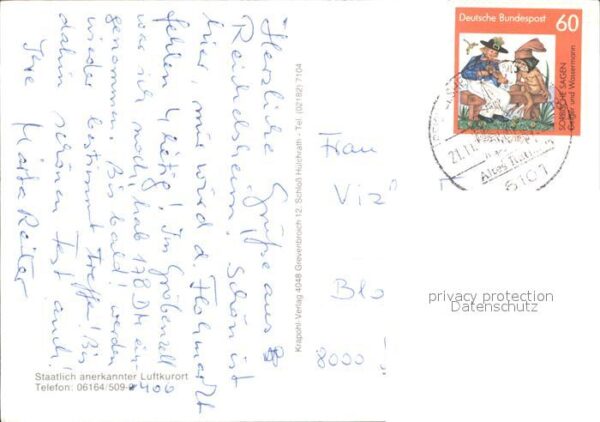 Herzliche Grüße aus
Reichelsheim. Schön ist
hier, nur wird d. Flohmarkt
fehlen 4 tätig! Im Gröbenzell
war ich noch, hab 178 DM ein-
genommen. Bis bald! werden
wieder bestimmt treffe! Bis
dahin schönen Fest auch!
Ihre
406
Staatlich anerkannter Luftkurort
Telefon: 06164/509-
Krapohl-Verlag 4048 Grevenbroich 12, Schloß Hülchrath - Tel. (02182) 7104
Deutsche Bundespost 60
SORBISCHE SAGEN
Geiger und Wassermann
21.11.
6101
Frau
Viz
Blo
8000
privacy protection
Datenschutz